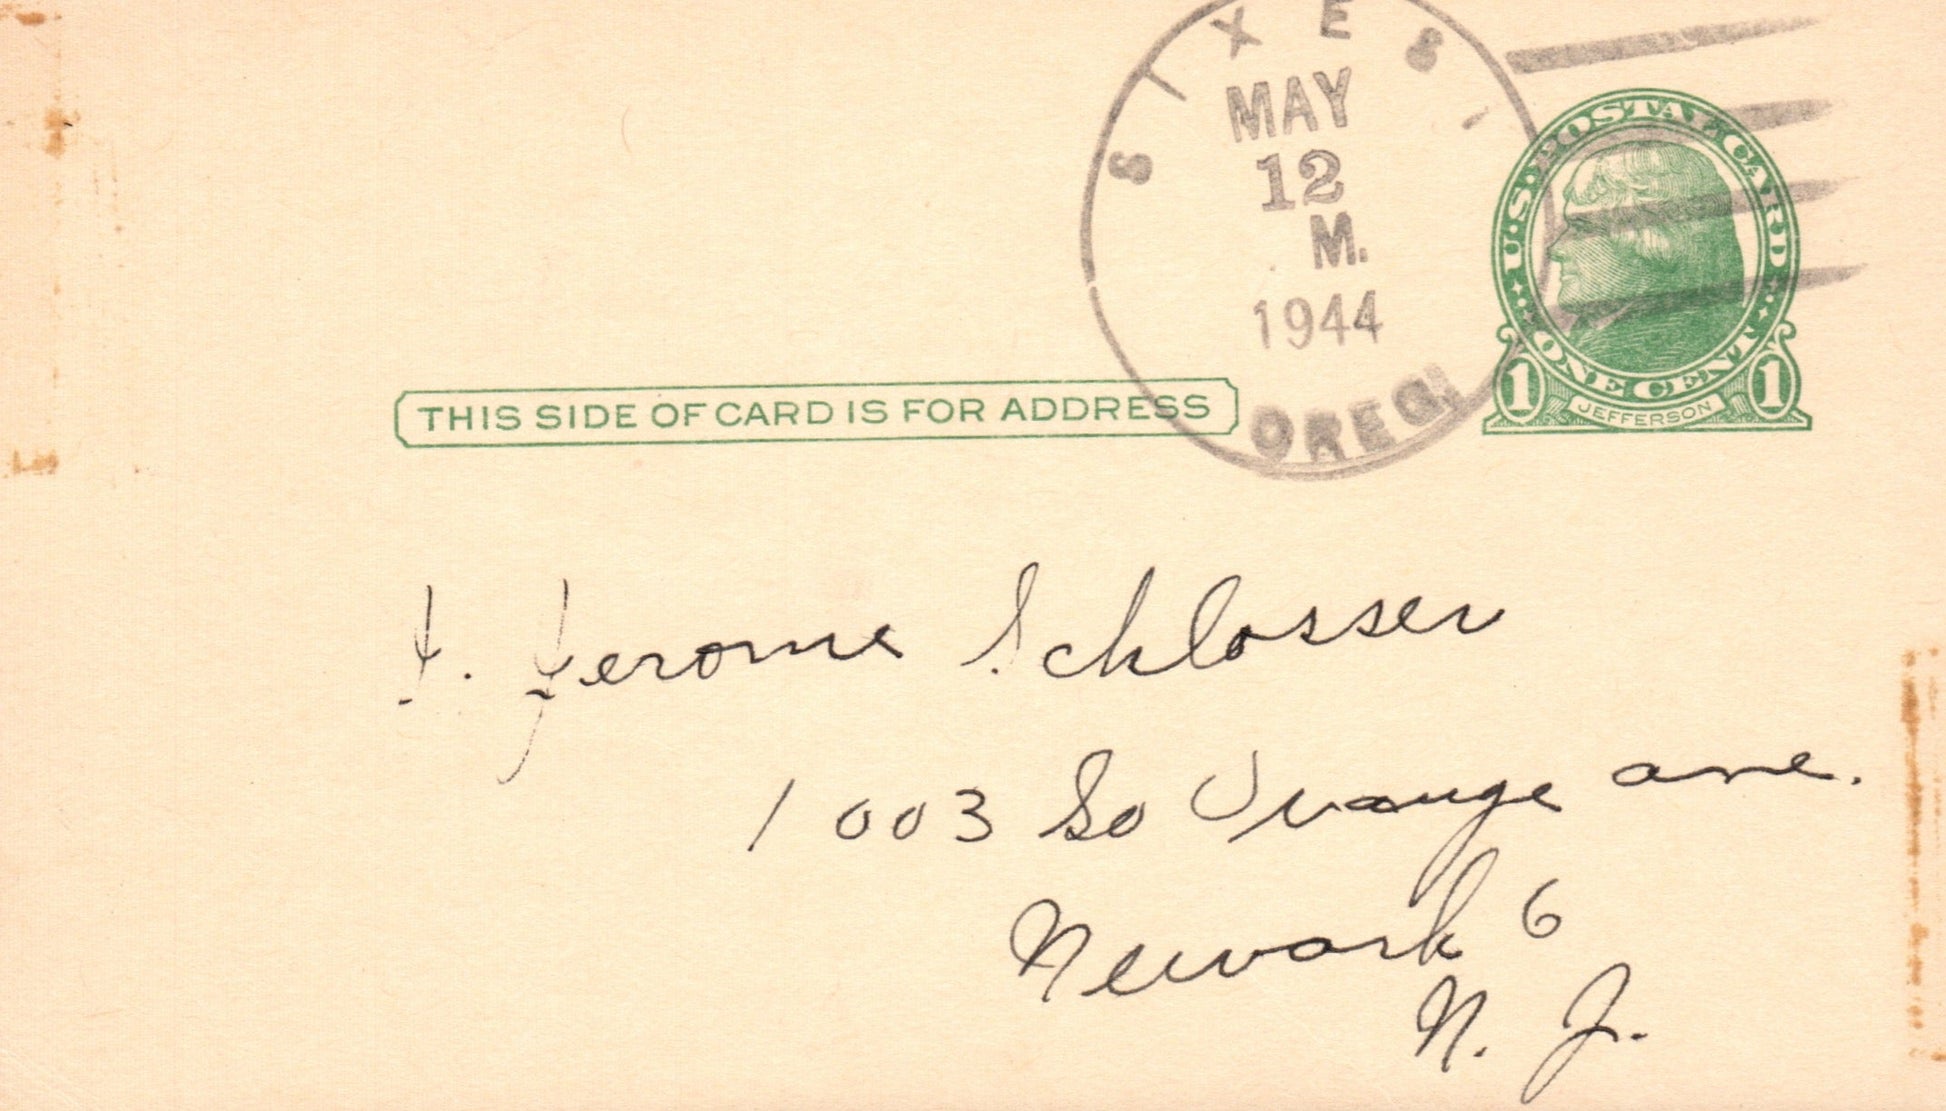 SIXES
MAY
12
M.
1944
OREG.
U.S. POSTAL CARD
ONE CENT
1 1
JEFFERSON
THIS SIDE OF CARD IS FOR ADDRESS
Jerome Schlosser
1003 So Orange ave.
Newark 6
N. J.